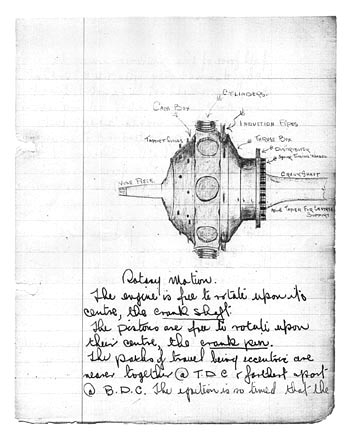 CYLINDERS.
CAM BOX
INDUCTION PIPES
TAPPET GUIDES
THRUST BOX
DISTRIBUTER
CRANKSHAFT
NOSE PIECE
SUPPORT
Rotary Motion.
The engine is free to rotate upon its
centre, the crank shaft.
The pistons are free to rotate upon
their centre, the crank pin.
The paths of travel being eccentric are
never together @ T.D.C & farthest apart
@ B.D.C. The ignition is so timed that the